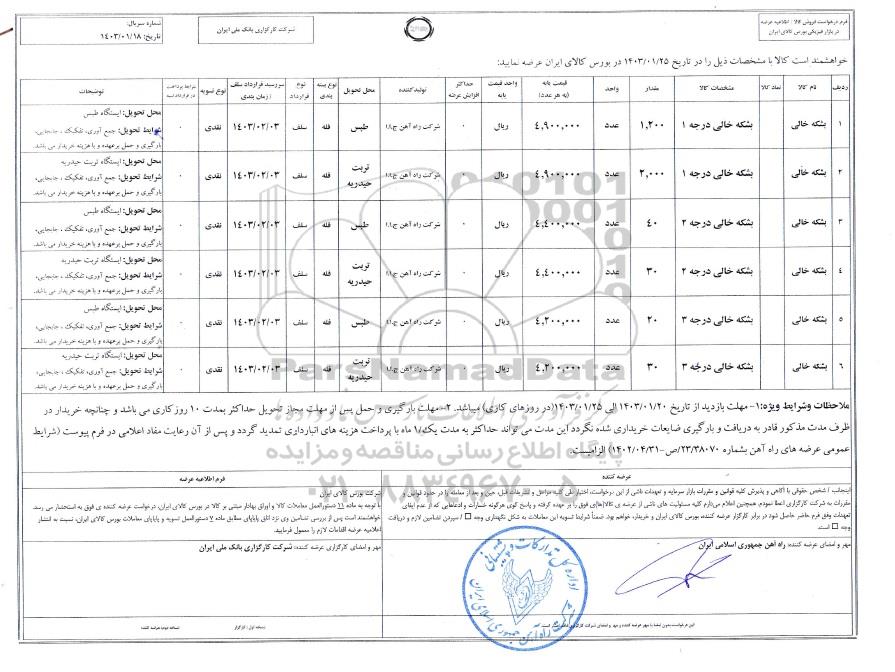 فرم درخواست فروش کالا / اطلاعیه عرضه
در بازار فیزیکی بورس کالای ایران
شرکت کارگزاری بانک ملی ایران
شماره سریال:
تاریخ: ۱۴۰۳/۰۱/۱۸
خواهشمند است کالا با مشخصات ذیل را در تاریخ ۱۴۰۳/۰۱/۲۵ در بورس کالای ایران عرضه نمایید:
ردیف نام کالا نماد کالا مشخصات کالا مقدار واحد قیمت پایه (به هر عدد) واحد قیمت پایه حداکثر افزایش عرضه تولیدکننده محل تحویل نوع بسته بندی نوع قرارداد سررسید قرارداد سلف / زمان بندی نوع تسویه شرایط پرداخت در قرارداد نسیه توضیحات
۱ بشکه خالی بشکه خالی درجه ۱ ۱,۲۰۰ عدد ۴,۹۰۰,۰۰۰ ریال ۰ شرکت راه آهن ج.ا.ا طبس فله سلف ۱۴۰۳/۰۲/۰۳ نقدی ۰ محل تحویل: ایستگاه طبس
شرایط تحویل: جمع آوری، تفکیک، جابجایی،
بارگیری و حمل برعهده و با هزینه خریدار می باشد.
۲ بشکه خالی بشکه خالی درجه ۱ ۲,۰۰۰ عدد ۴,۹۰۰,۰۰۰ ریال ۰ شرکت راه آهن ج.ا.ا تربت حیدریه فله سلف ۱۴۰۳/۰۲/۰۳ نقدی ۰ محل تحویل: ایستگاه تربت حیدریه
شرایط تحویل: جمع آوری، تفکیک، جابجایی،
بارگیری و حمل برعهده و با هزینه خریدار می باشد.
۳ بشکه خالی بشکه خالی درجه ۲ ۴۰ عدد ۴,۴۰۰,۰۰۰ ریال ۰ شرکت راه آهن ج.ا.ا طبس فله سلف ۱۴۰۳/۰۲/۰۳ نقدی ۰ محل تحویل: ایستگاه طبس
شرایط تحویل: جمع آوری، تفکیک، جابجایی،
بارگیری و حمل برعهده و با هزینه خریدار می باشد.
۴ بشکه خالی بشکه خالی درجه ۲ ۳۰ عدد ۴,۴۰۰,۰۰۰ ریال ۰ شرکت راه آهن ج.ا.ا تربت حیدریه فله سلف ۱۴۰۳/۰۲/۰۳ نقدی ۰ محل تحویل: ایستگاه تربت حیدریه
شرایط تحویل: جمع آوری، تفکیک، جابجایی،
بارگیری و حمل برعهده و با هزینه خریدار می باشد.
۵ بشکه خالی بشکه خالی درجه ۳ ۲۰ عدد ۴,۲۰۰,۰۰۰ ریال ۰ شرکت راه آهن ج.ا.ا طبس فله سلف ۱۴۰۳/۰۲/۰۳ نقدی ۰ محل تحویل: ایستگاه طبس
شرایط تحویل: جمع آوری، تفکیک، جابجایی،
بارگیری و حمل برعهده و با هزینه خریدار می باشد.
۶ بشکه خالی بشکه خالی درجه ۳ ۳۰ عدد ۴,۲۰۰,۰۰۰ ریال ۰ شرکت راه آهن ج.ا.ا تربت حیدریه فله سلف ۱۴۰۳/۰۲/۰۳ نقدی ۰ محل تحویل: ایستگاه تربت حیدریه
شرایط تحویل: جمع آوری، تفکیک، جابجایی،
بارگیری و حمل برعهده و با هزینه خریدار می باشد.
ParsNamadData
پایگاه اطلاع رسانی مناقصه و مزایده
۰۲۱-۸۸۳۴۹۶۷۰-۵
ملاحظات وشرایط ویژه:۱- مهلت بازدید از تاریخ ۱۴۰۳/۰۱/۲۰ الی ۱۴۰۳/۰۱/۲۵(در روزهای کاری) میباشد. ۲- مهلت بارگیری و حمل پس از مهلت مجاز تحویل حداکثر بمدت ۱۰ روز کاری می باشد و چنانچه خریدار در
ظرف مدت مذکور قادر به دریافت و بارگیری ضایعات خریداری شده نگردد این مدت می تواند حداکثر به مدت یک/۱ ماه با پرداخت هزینه های انبارداری تمدید گردد و پس از آن رعایت مفاد اعلامی در فرم پیوست (شرایط
عمومی عرضه های راه آهن بشماره ۲۳/۳۸۰۷۰/ص-۱۴۰۲/۰۴/۳۱) الزامیست.
عرضه کننده
اینجانب / شخص حقوقی با آگاهی و پذیرش کلیه قوانین و مقررات بازار سرمایه و تعهدات ناشی از این درخواست، اختیار
مقررات به شرکت کارگزاری اعطا نمودم. همچنین اعلام می‌دارم کلیه مسئولیت های ناشی از عرضه ی کالا(ها)ی فوق را بر عهده گرفته و پاسخ گوی هرگونه خسارات و ادعاهایی که از عدم ایفای
تعهدات وفق فرم حاضر حاصل شود در برابر کارگزار عرضه کننده بورس کالای ایران و خریدار، خواهم بود. ضمناً شرایط تسویه این معاملات به شکل نگهداری وجه / سپردن تضامین لازم و دریافت
وجه است.
مهر و امضای عرضه کننده: راه آهن جمهوری اسلامی ایران
فرم اطلاعیه عرضه
شرکت بورس کالای ایران
با توجه به ماده ۱۱ دستورالعمل معاملات کالا و اوراق بهادار مبتنی بر کالا در بورس کالای ایران، درخواست عرضه کننده ی فوق به استحضار می رسد.
خواهشمند است پس از بررسی تضامین وی نزد اتاق پایاپای مطابق ماده ۷ دستورالعمل تسویه و پایاپای معاملات بورس کالای ایران، نسبت به انتشار
اعلامیه عرضه اقدامات لازم را معمول فرمایید.
مهر و امضای کارگزاری عرضه کننده: شرکت کارگزاری بانک ملی ایران
اداره کل تدارکات و پشتیبانی
این درخواست بدون امضا یا مهر عرضه کننده و مهر و امضای شرکت کارگزاری
نسخه اول: کارگزار
نسخه دوم: عرضه کننده